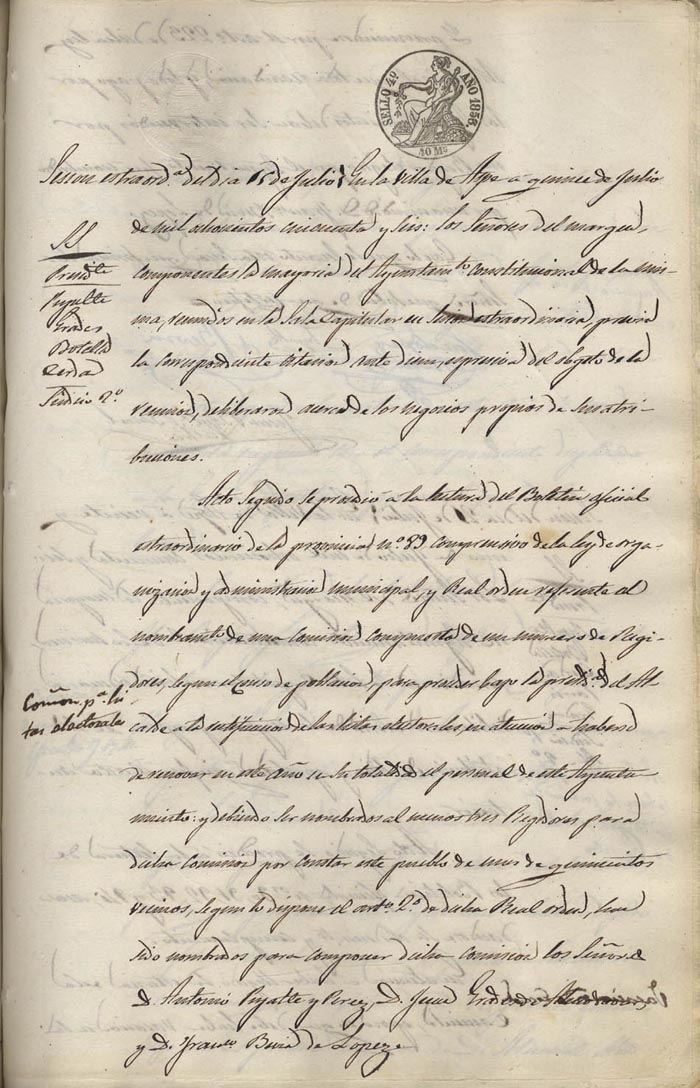 SELLO 4º AÑO 1856.
40 Ms
Sesion estraordª del dia 15 de Julio } En la Villa de Aspe a quince de Julio
de mil ochocientos cincuenta y seis: los Señores del margen,
SS
Presidte
Pujalte
Botella
Cerdá
Sindico 2º
componentes la mayoria del Ayuntamto constitucional de la mis-
ma, reunidos en la Sala Capitular en Sesion estraordinaria, previa
la correspondiente citacion ante diem, espresiva del objeto de la
reunion, deliberaron acerca de los negocios propios de sus atri-
buciones.
Acto seguido se procedió a la lectura del Boletin oficial
estraordinario de la provincia nº 89 comprensivo de la ley de orga-
nizacion y administracion municipal, y Real orden referente al
nombramto de una Comision compuesta de un numero de Regi-
dores, segun el censo de poblacion, para proceder bajo la presidª del Al-
Comon pª lis-
tas electorales
calde a la rectificacion de las listas electorales, en atencion a haberse
de renovar en este año en su totalidad el personal de este Ayunta-
miento: y debiendo ser nombrados al menos tres Regidores para
dicha Comision por constar este pueblo de mas de quinientos
vecinos, segun lo dispone el artº 2º de dicha Real orden, han
sido nombrados para componer dicha comision los Señores
D. Antonio Pujalte y Perez, D. José
y D. Franco de Lopez